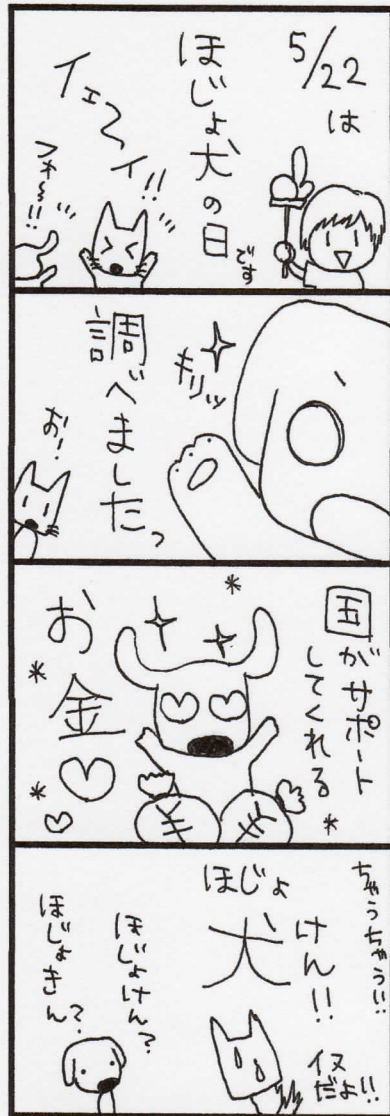 5/22
は
ほじょ犬の日
です
イェ〜イ!!
フォ〜!!
キリッ
調べました。
お!
国がサポート
してくれる
お金♡
ちゃうちゃう!!
ほじょ
犬
けん!!
イヌ
だよ!!
ほじょけん?
ほじょきん?